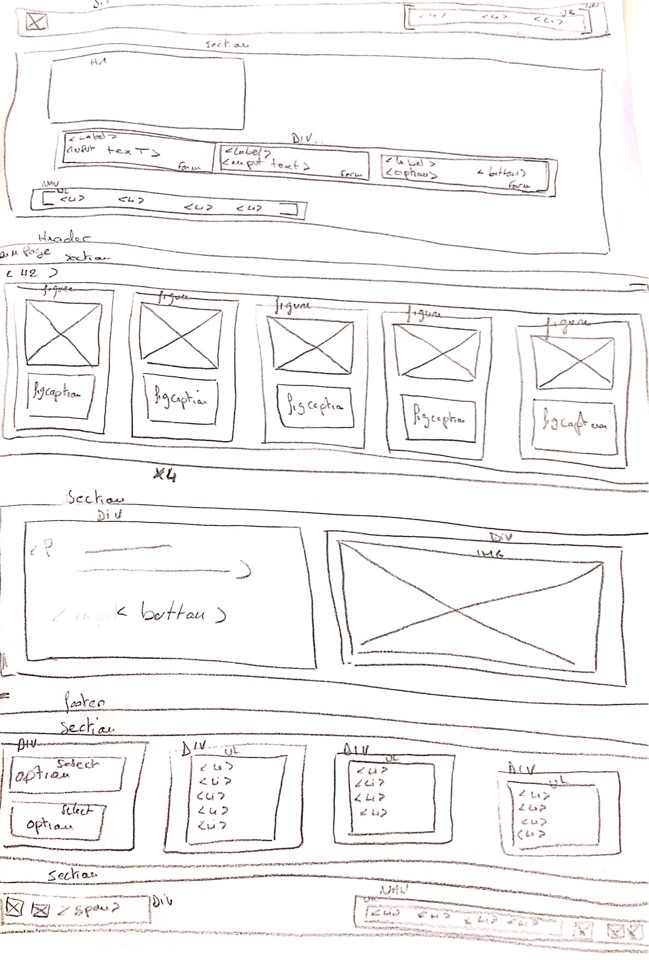 Div
NAV
UL
<Li> <Li> <Li>
Section
H1
DIV
<Label>
<input text>
Form
<Label>
<input text>
Form
<Label>
<option>
<button>
Form
NAV
UL
<Li> <Li> <Li> <Li>
Header
Section
<H2>
figure figure figure figure figure
figcaption figcaption figcaption figcaption figcaption
x4
Section
DIV
<P
>
<button>
DIV
IMG
footer
Section
DIV
Select
option
Select
option
DIV
UL
<Li>
<Li>
<Li>
<Li>
<Li>
DIV
UL
<Li>
<Li>
<Li>
<Li>
DIV
UL
<Li>
<Li>
<Li>
<Li>
Section
<span>
Div
NAV
UL
<Li> <Li> <Li> <Li>